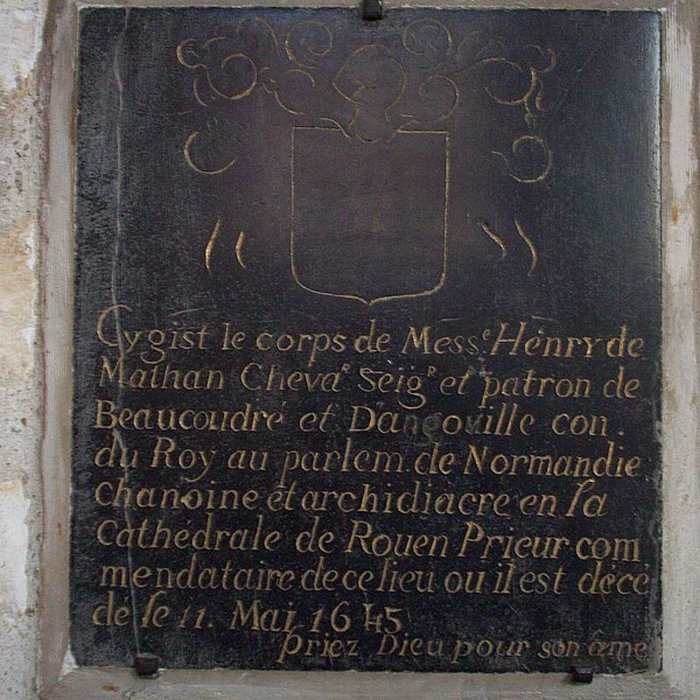 Cy gist le corps de Mess.e Henry de
Mathan Cheva.r Seig.r et patron de
Beaucoudré et Dangouille con.
du Roy au parlem. de Normandie
chanoine et archidiacre en la
cathédrale de Rouen Prieur com
mendataire de ce lieu ou il est décé
dé le 11. Mai 1645
priez Dieu pour son âme